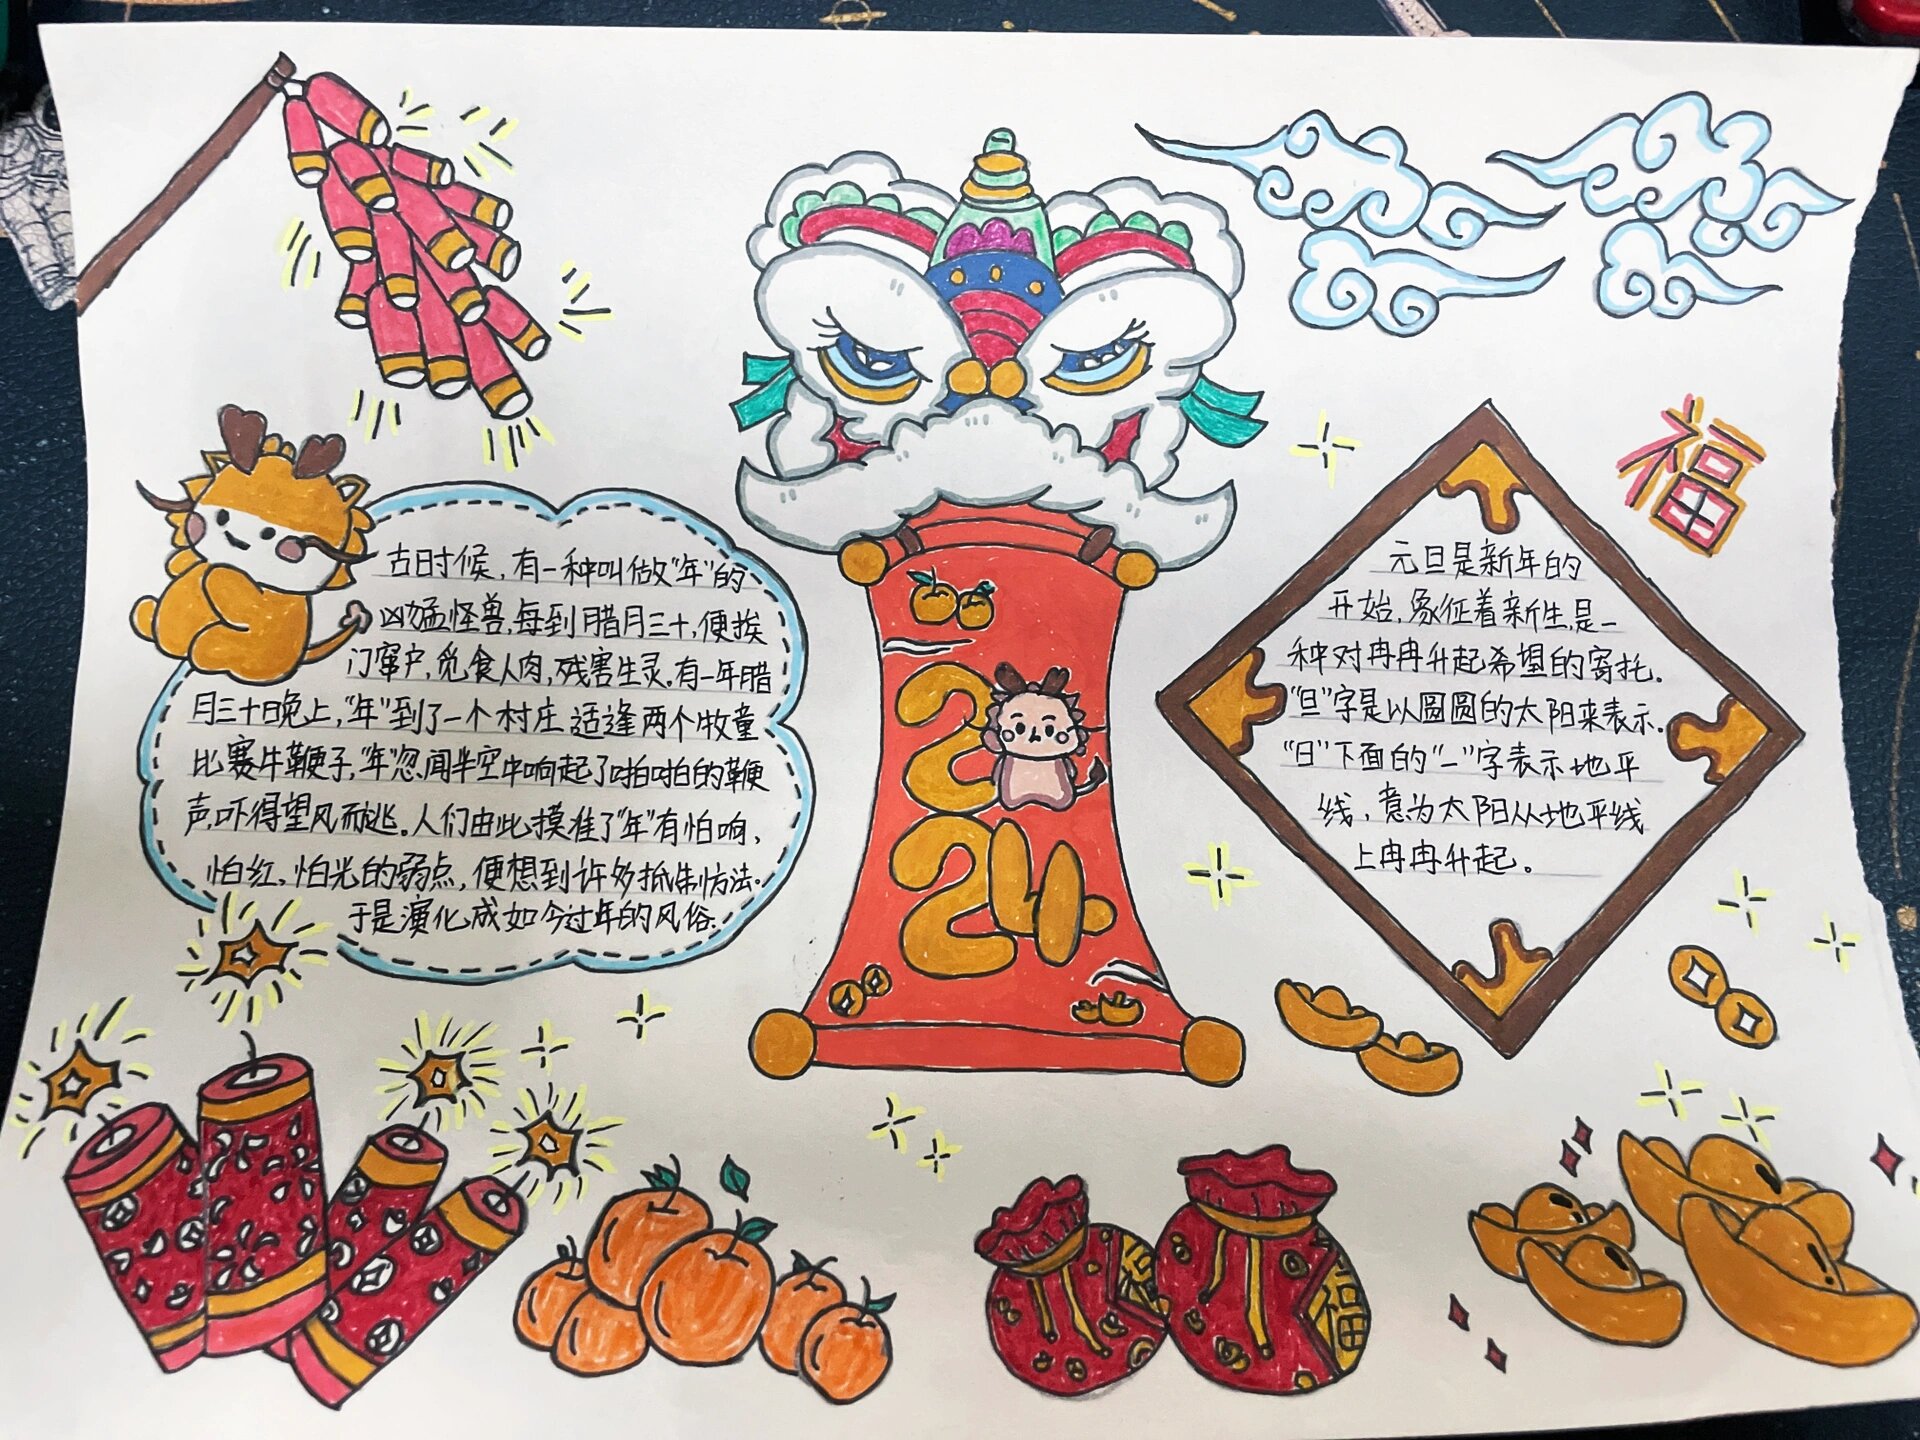 古时候,有一种叫做"年"的
凶猛怪兽,每到腊月三十,便挨
门窜户,觅食人肉,残害生灵。有一年腊
月三十晚上,"年"到了一个村庄,适逢两个牧童
比赛牛鞭子,"年"忽闻半空中响起了啪啪的鞭
声,吓得望风而逃。人们由此摸准了"年"有怕响,
怕红,怕光的弱点,便想到许多抵制方法.
于是演化成如今过年的风俗.
2024
福
元旦是新年的
开始,象征着新生,是一
种对冉冉升起希望的寄托。
"旦"字是以圆圆的太阳来表示.
"日"下面的"一"字表示地平
线,意为太阳从地平线
上冉冉升起。
福